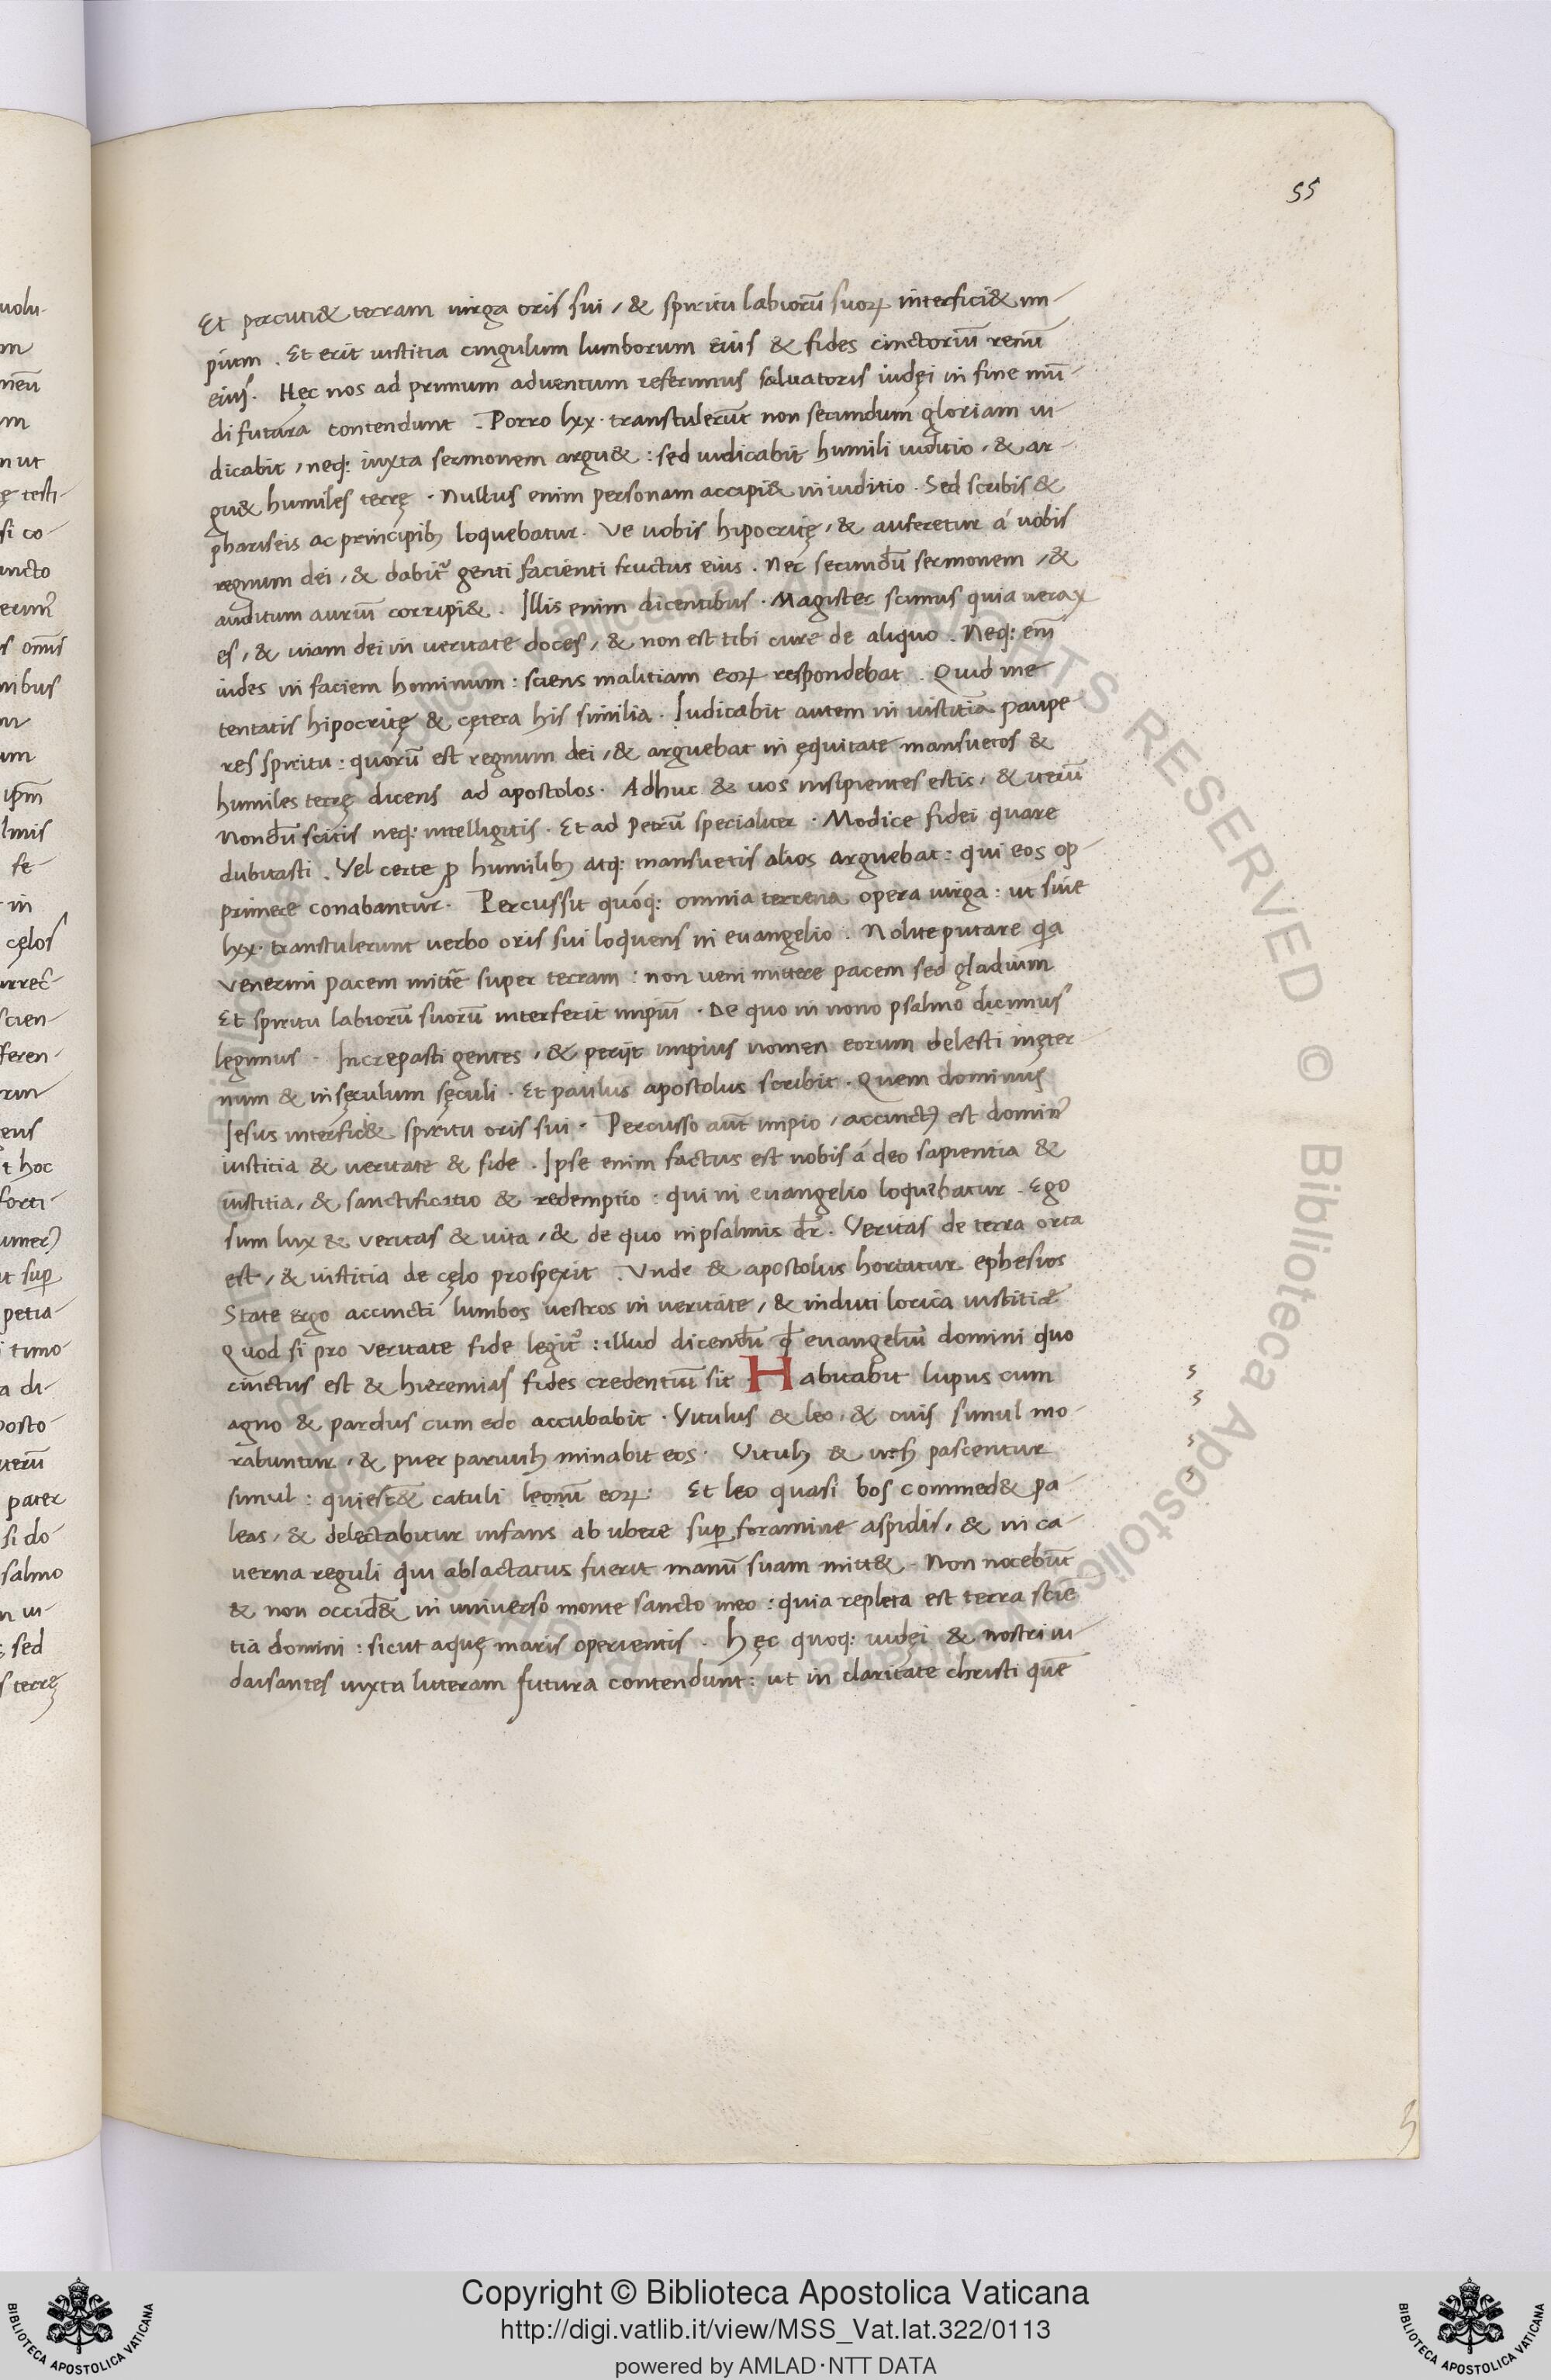 55
Et percuti& terram uirga oris sui, & spiritu labiorū suoꝝ interfici& im-
pium. Et erit iustitia cingulum lumborum eius & fides cinctoriū renū
eius. Hęc nos ad primum aduentum referimus saluatoris iudęi in fine mū-
di futura contendunt. Porro lxx. transtulerūt non secundum gloriam iu-
dicabit, neq: iuxta sermonem argu&: sed iudicabit humili iuditio, & ar-
gu& humiles terrę. Nullus enim personam accipi& in iuditio. Sed scribis &
phariseis ac principib; loquebatur. Ve uobis hipocritę, & auferetur á uobis
regnum dei, & dabit᷑ genti facienti fructus eius. Nec secundū sermonem, &
auditum auriū corripi&. Illis enim dicentibus. Magister scimus quia uerax
es, & uiam dei in ueritate doces, & non est tibi cure de aliquo. Neq: em̄
uides in faciem hominum: sciens malitiam eoꝝ respondebat. Quid me
tentatis hipocritę & cętera his similia. Iudicabit autem in iustitia paupe
res spiritu: quorū est regnum dei, & arguebat in ęquitate mansuetos &
humiles terrę dicens ad apostolos. Adhuc & uos insipientes estis, & uerū
Nondū scitis neq: intelligitis. Et ad Petrū specialiter. Modice fidei quare
dubitasti. Vel certe ꝓ humilib; atq: mansuetis alios arguebat: qui eos op-
primere conabantur. Percussit quóq: omnia terrena opera uirga: ut siue
lxx. transtulerunt uerbo oris sui loquens in euangelio. Nolite putare qa
venerim pacem mittē super terram: non ueni mittere pacem sed gladium
Et spiritu labiorū suorū interferit impiū. De quo in nono psalmo dicimus
legimus. Increpasti gentes, & perijt impius nomen eorum delesti inęter-
num & insęculum sęculi. Et paulus apostolus scribit. Quem dominus
Iesus interfici& spiritu oris sui. Percusso aūt impio, accinctꝰ est domin᷒
iustitia & ueritate & fide. Ipse enim factus est nobis á deo sapientia &
iustitia, & sanctificatio & redemptio: qui in euangelio loquebatur. Ego
sum lux & veritas & uita, & de quo inpsalmis dr̄. Veritas de terra orta
est, & iustitia de cęlo prospexit. Vnde & apostolus hortatur ephesios
State ergo accincti lumbos uestros in ueritate, & induti lorica iustitiæ
Quod si pro veritate fide legit᷑: illud dicendū ꝙ euangeliū domini quo
cinctus est & hieremias fides credentiū sit Habitabit lupus cum
agno & pardus cum edo accubabit. Vitulus & leo, & ouis simul mo-
rabuntur, & puer paruulꝰ minabit eos. Vitulꝰ & ursꝰ pascentur
simul: quiesc& catuli leonū eoꝝ. Et leo quasi bos commed& pa-
leas, & delectabitur infans ab ubere sup foramine aspidis, & in ca-
uerna reguli qui ablactatus fuerit manū suam mitt&. Non nocebūt
& non occid& in uniuerso monte sancto meo: quia repleta est terra scie
tia domini: sicut aquę maris operientis. Hęc quoq: iudęi & nostri iu-
daisantes iuxta litteram futura contendunt: ut in claritate christi quē
Copyright © Biblioteca Apostolica Vaticana
http://digi.vatlib.it/view/MSS_Vat.lat.322/0113
powered by AMLAD·NTT DATA